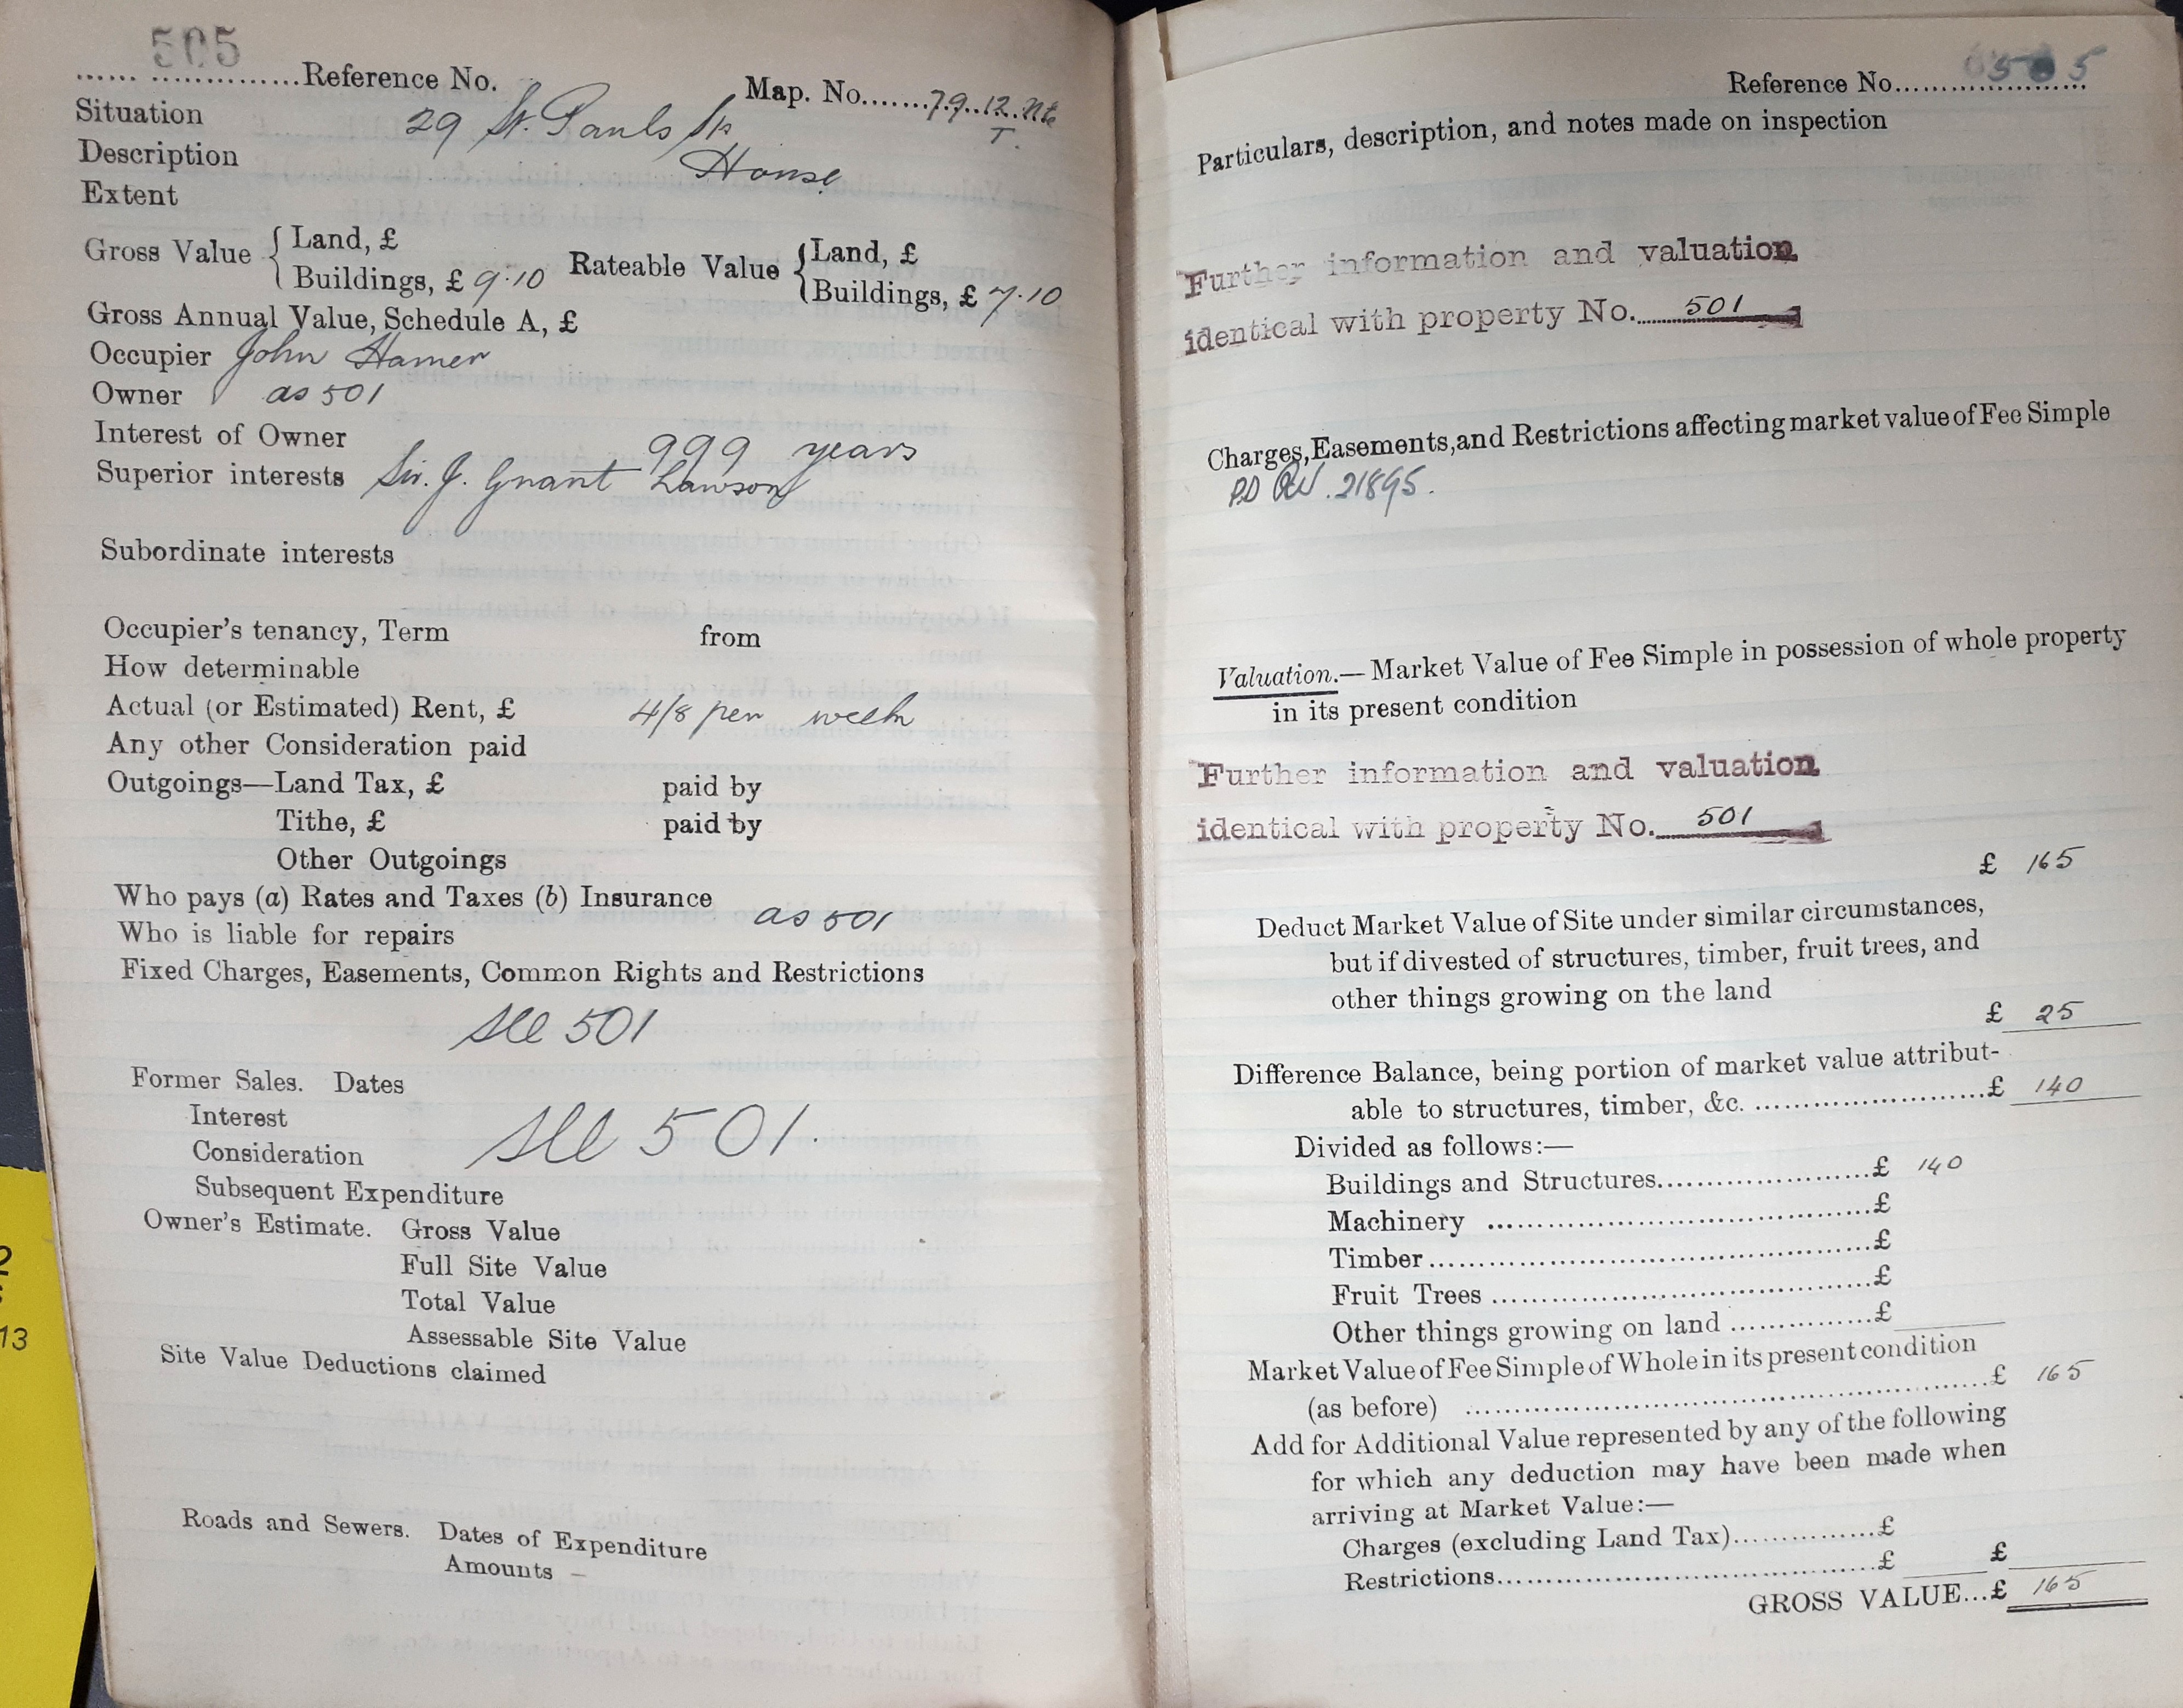 505
...... ..............Reference No.
Map. No.......79..12.
T.
Situation 29 St. Pauls
Description House
Extent
Gross Value { Land, £
Buildings, £ 9·10
Rateable Value { Land, £
Buildings, £ 7·10
Gross Annual Value, Schedule A, £
Occupier John Hamer
Owner as 501
Interest of Owner 999 years
Superior interests Sir. J. Grant Lawson
Subordinate interests
Occupier's tenancy, Term from
How determinable
Actual (or Estimated) Rent, £ 4/8 per week
Any other Consideration paid
Outgoings—Land Tax, £ paid by
Tithe, £ paid by
Other Outgoings
Who pays (a) Rates and Taxes (b) Insurance
as 501
Who is liable for repairs
Fixed Charges, Easements, Common Rights and Restrictions
see 501
Former Sales. Dates
Interest
see 501.
Consideration
Subsequent Expenditure
Owner's Estimate. Gross Value
Full Site Value
Total Value
Assessable Site Value
Site Value Deductions claimed
Roads and Sewers. Dates of Expenditure
Amounts –
2
13
Reference No......................
Particulars, description, and notes made on inspection
Further information and valuation
identical with property No. 501
Charges, Easements, and Restrictions affecting market value of Fee Simple
21895.
Valuation.—Market Value of Fee Simple in possession of whole property
in its present condition
Further information and valuation
identical with property No. 501
£ 165
Deduct Market Value of Site under similar circumstances,
but if divested of structures, timber, fruit trees, and
other things growing on the land
£ 25
Difference Balance, being portion of market value attribut-
able to structures, timber, &c. ..........................£ 140
Divided as follows:—
Buildings and Structures.......................£ 140
Machinery ..........................................£
Timber................................................£
Fruit Trees .........................................£
Other things growing on land ...............£
Market Value of Fee Simple of Whole in its present condition
(as before) .........................................................£ 165
Add for Additional Value represented by any of the following
for which any deduction may have been made when
arriving at Market Value:—
Charges (excluding Land Tax)...............£
Restrictions..........................................£ £
GROSS VALUE...£ 165